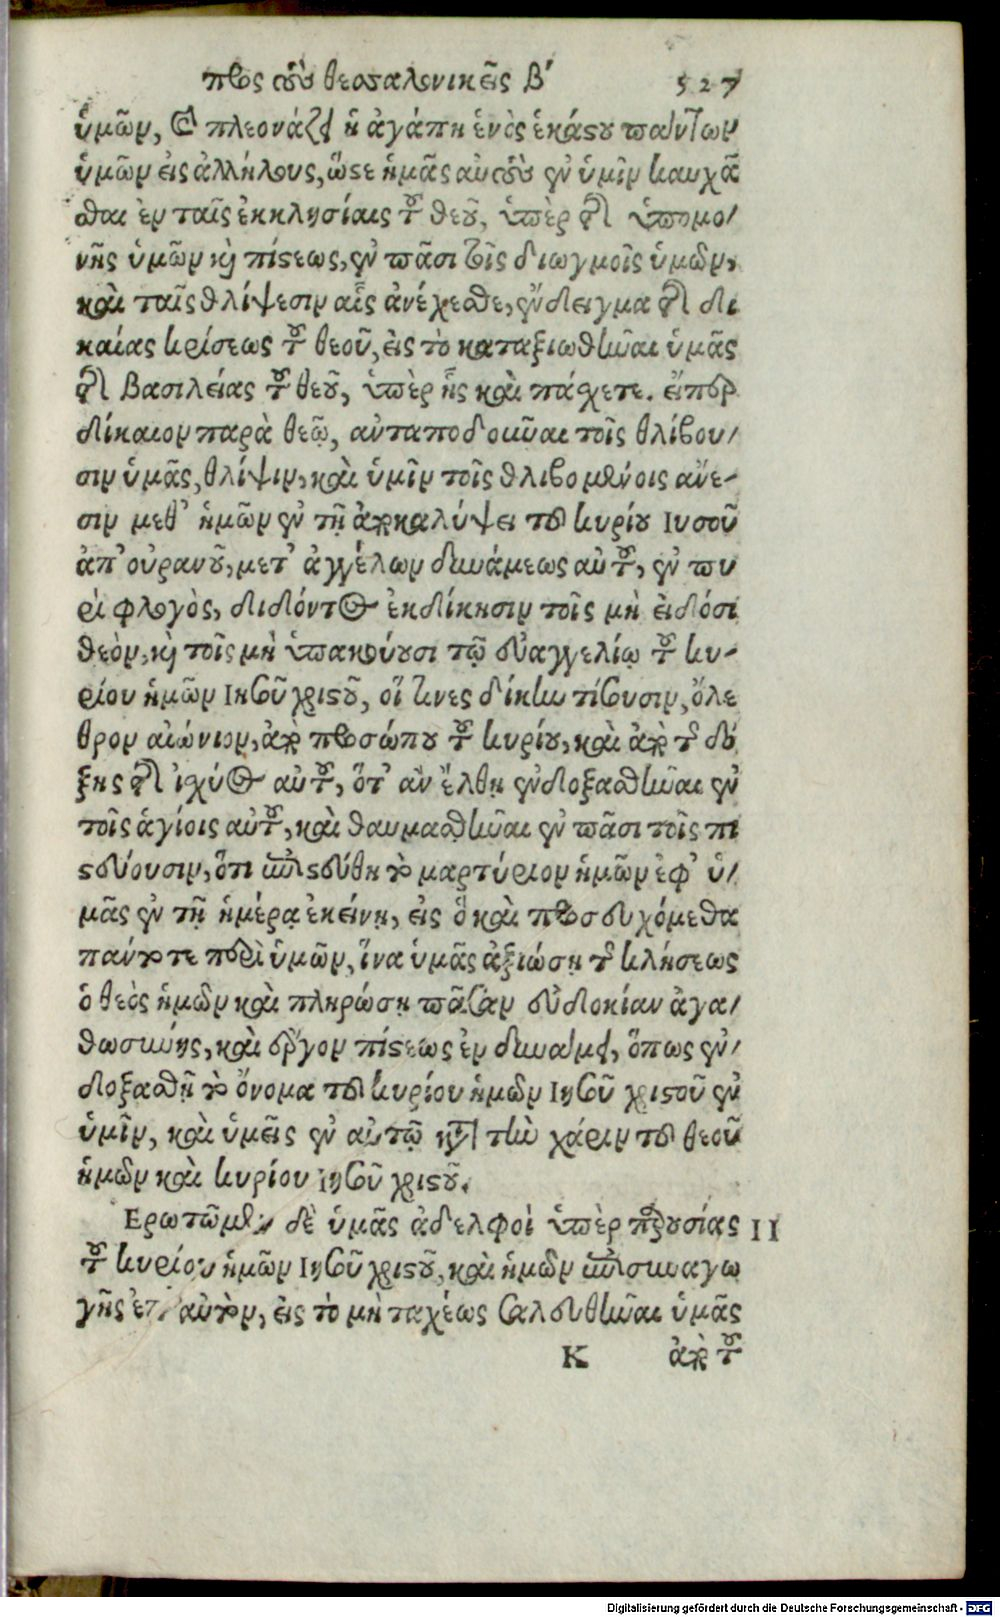 πρὸς τοὺς θεσσαλονικεῖς β΄ 527
ὑμῶν, καὶ πλεονάζει ἡ ἀγάπη ἑνὸς ἑκάστου πάντων
ὑμῶν εἰς ἀλλήλους, ὥστε ἡμᾶς αὐτοὺς ἐν ὑμῖν καυχᾶ
σθαι ἐν ταῖς ἐκκλησίαις τοῦ θεοῦ, ὑπὲρ τῆς ὑπομο/
νῆς ὑμῶν καὶ πίστεως, ἐν πᾶσι τοῖς διωγμοῖς ὑμῶν,
καὶ ταῖς θλίψεσιν αἷς ἀνέχεσθε, ἔνδειγμα τῆς δι
καίας κρίσεως τοῦ θεοῦ, εἰς τὸ καταξιωθῆναι ὑμᾶς
τῆς βασιλείας τοῦ θεοῦ, ὑπὲρ ἧς καὶ πάσχετε. εἴπερ
δίκαιον παρὰ θεῷ, ἀνταποδοῦναι τοῖς θλίβου/
σιν ὑμᾶς, θλίψιν, καὶ ὑμῖν τοῖς θλιβομένοις ἄνε-
σιν μεθ' ἡμῶν ἐν τῇ ἀποκαλύψει τοῦ κυρίου Ιησοῦ
ἀπ' οὐρανοῦ, μετ' ἀγγέλων δυνάμεως αὐτοῦ, ἐν πυ
ρὶ φλογὸς, διδόντος ἐκδίκησιν τοῖς μὴ εἰδόσι
θεὸν, καὶ τοῖς μὴ ὑπακούουσι τῷ εὐαγγελίῳ τοῦ κυ-
ρίου ἡμῶν Ιησοῦ χριστοῦ, οἵ τινες δίκην τίσουσιν, ὄλε
θρον αἰώνιον, ἀπὸ προσώπου τοῦ κυρίου, καὶ ἀπὸ τῆς δό
ξης τῆς ἰσχύος αὐτοῦ, ὅτ' ἂν ἔλθῃ ἐνδοξασθῆναι ἐν
τοῖς ἁγίοις αὐτοῦ, καὶ θαυμασθῆναι ἐν πᾶσι τοῖς πι
στεύουσιν, ὅτι ἐπιστεύθη τὸ μαρτύριον ἡμῶν ἐφ' ὑ/
μᾶς ἐν τῇ ἡμέρᾳ ἐκείνῃ, εἰς ὃ καὶ προσευχόμεθα
πάντοτε περὶ ὑμῶν, ἵνα ὑμᾶς ἀξιώσῃ τῆς κλήσεως
ὁ θεὸς ἡμῶν καὶ πληρώσῃ πᾶσαν εὐδοκίαν ἀγα/
θωσύνης, καὶ ἔργον πίστεως ἐν δυνάμει, ὅπως ἐν/
δοξασθῇ τὸ ὄνομα τοῦ κυρίου ἡμῶν Ιησοῦ χριστοῦ ἐν
ὑμῖν, καὶ ὑμεῖς ἐν αὐτῷ κατὰ τὴν χάριν τοῦ θεοῦ
ἡμῶν καὶ κυρίου Ιησοῦ χριστοῦ.
Ερωτῶμεν δὲ ὑμᾶς ἀδελφοὶ ὑπὲρ παρουσίας II
τοῦ κυρίου ἡμῶν Ιησοῦ χριστοῦ, καὶ ἡμῶν ἐπισυναγω
γῆς ἐπ' αὐτὸν, εἰς τὸ μὴ ταχέως σαλευθῆναι ὑμᾶς
K ἀπὸ τοῦ
Digitalisierung gefördert durch die Deutsche Forschungsgemeinschaft - DFG